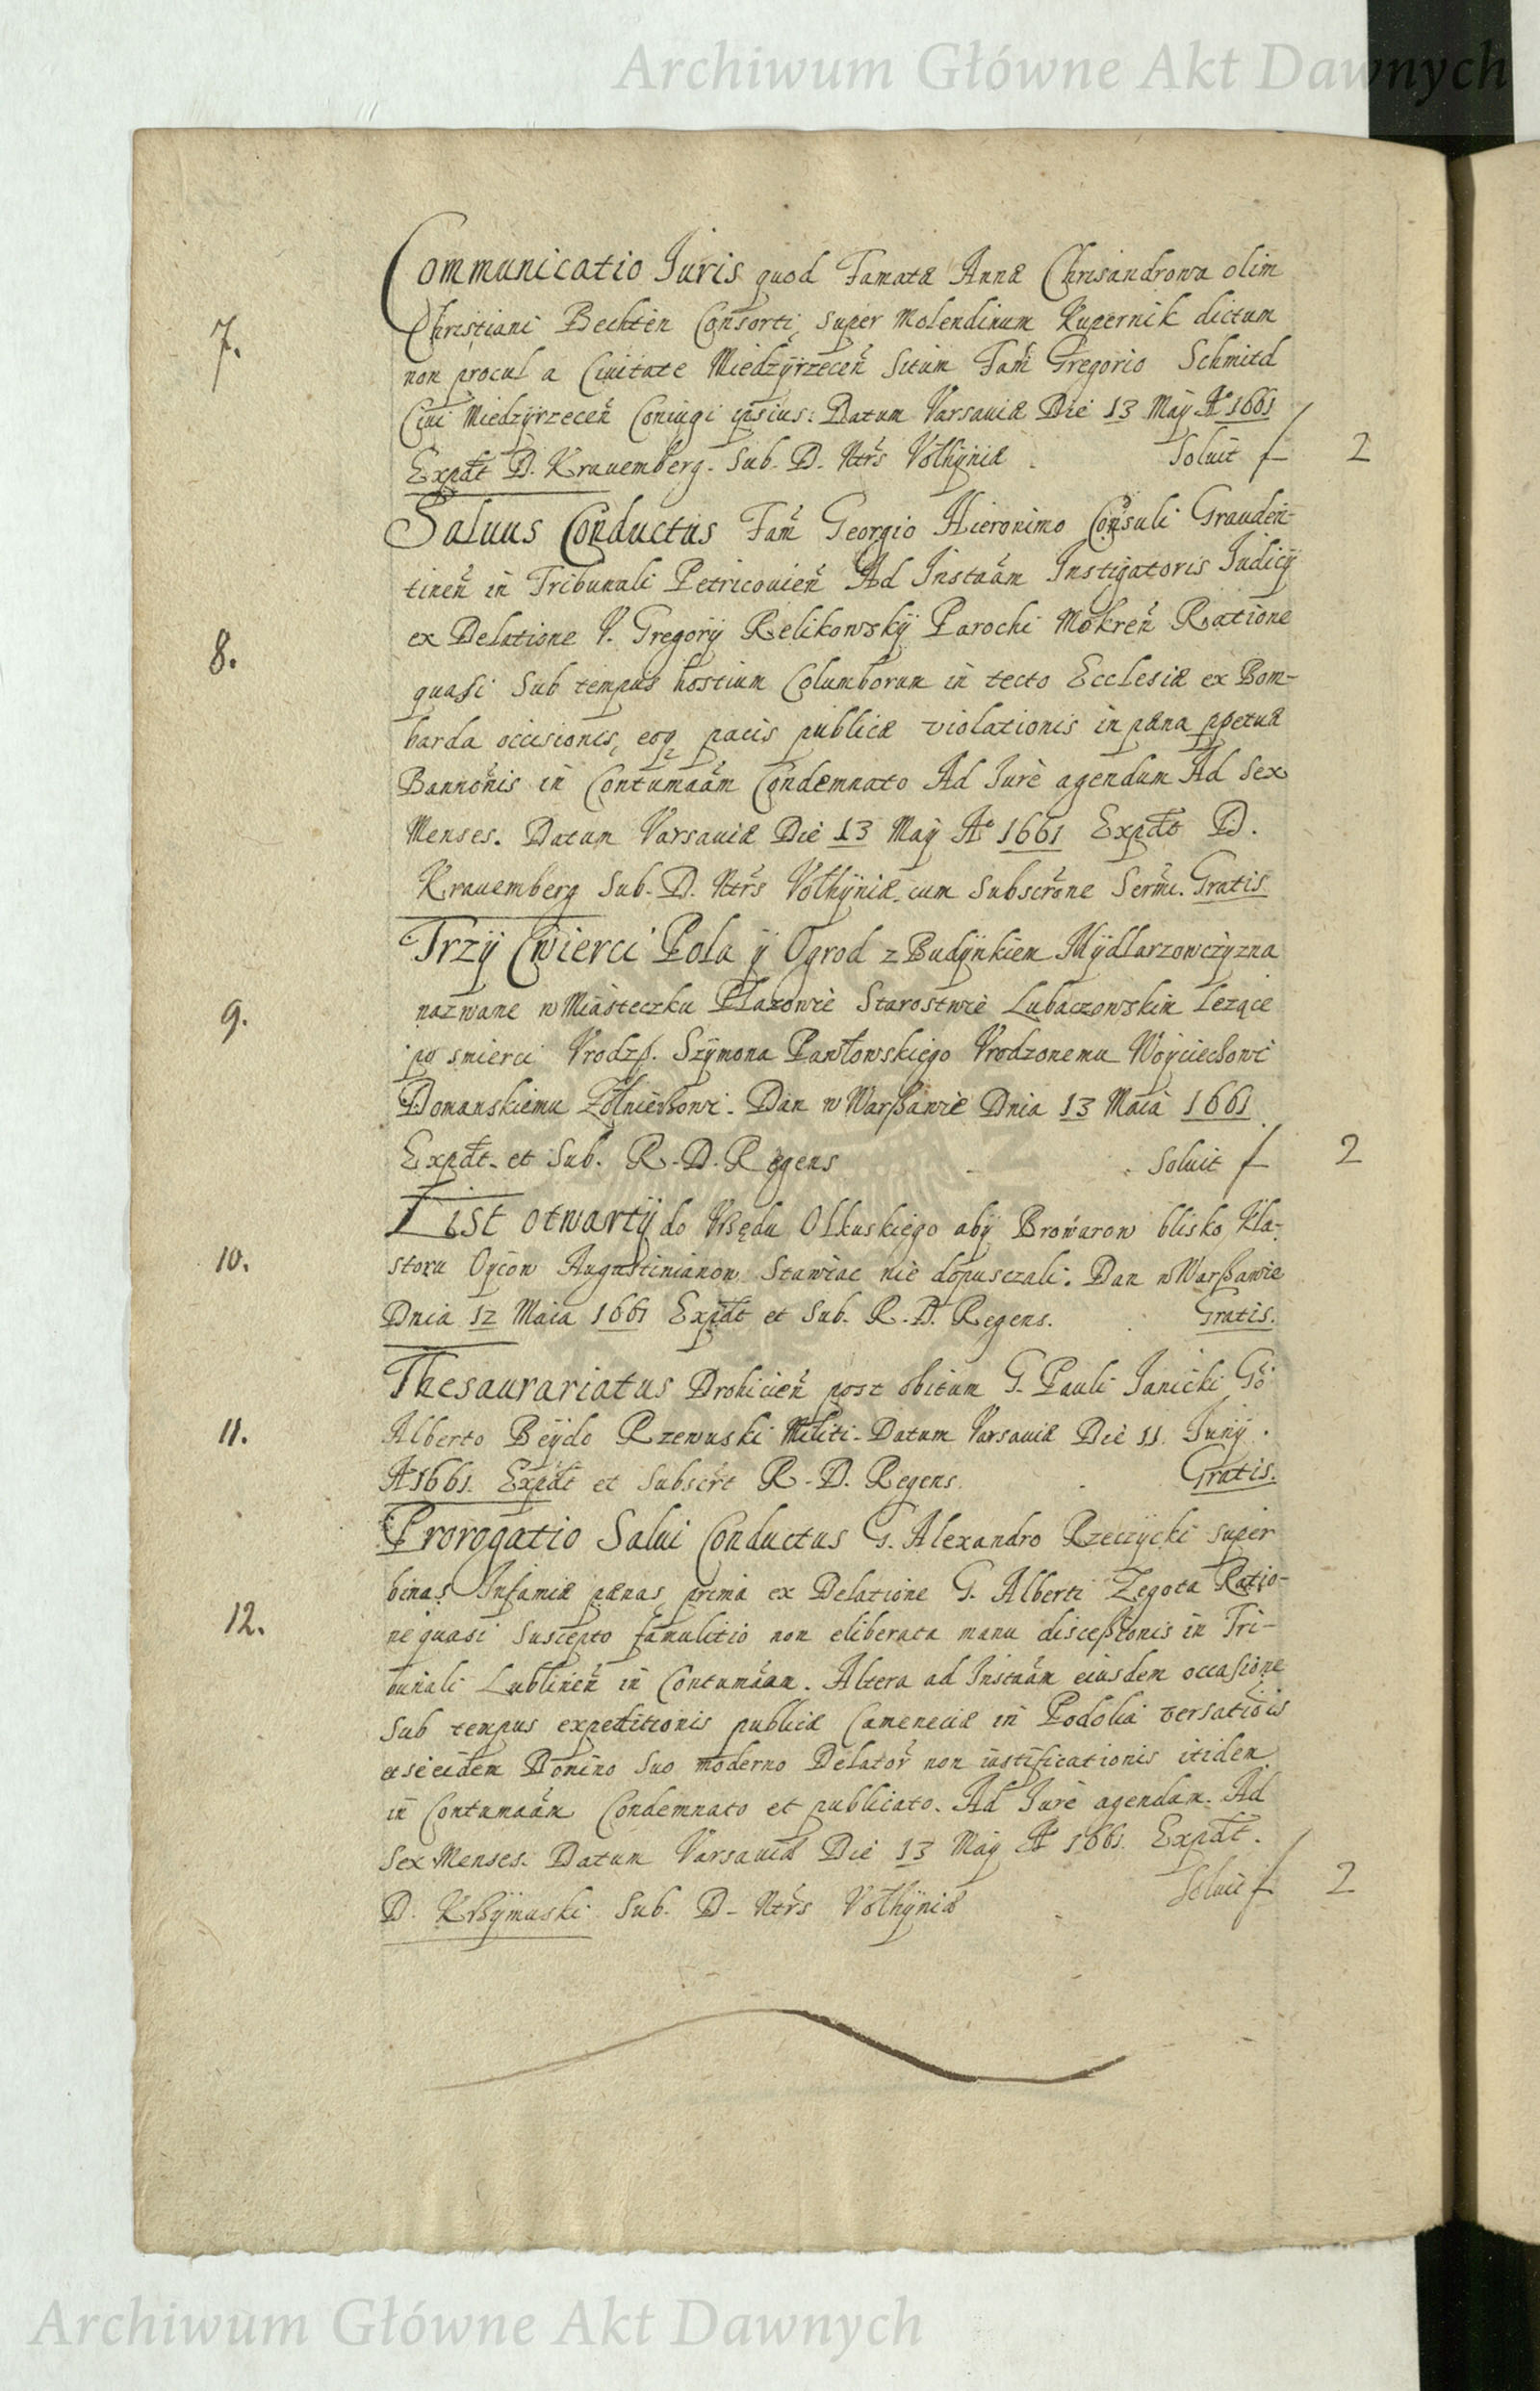 Archiwum Główne Akt Dawnych
Communicatio Juris quod Famatæ Annæ Chrisandrowa olim
7. Christiani Bechtin Consorti, super Molendinum Kupernik dictum
non procul a Civitate Miedzÿrzeceñ situm Fam̃ Gregorio Schmitd
Civi Miedzÿrzeceñ Coniugi ipsius: Datum Varsaviæ Die 13 Maÿ Aº 1661
Expdt D. Krauemberg. Sub. D. Ntrs Volhÿniæ. Soluit f 2
Saluus Conductus Fam̃ Georgio Hieronimo Consuli Grauden-
tineñ in Tribunali Petricouieñ Ad Instañam Instigatoris Judicÿ
8. ex Delatione V. Gregorÿ Relikowskÿ Parochi Mokreñ Ratione
quasi sub tempus hostium Columborum in tecto Ecclesiæ ex Bom-
barda occisionis, eoq pacis publicæ violationis in pæna ppetuæ
Bannonis in Contumaãm Condemnato Ad Jure agendum Ad sex
Menses. Datum Varsaviæ Die 13 Maÿ Aº 1661 Expdt D.
Krauemberg Sub. D. Ntrs Volhÿniæ cum Subscrõne Serm̃. Gratis
Trzÿ Cwierci Pola ÿ Ogrod z Budÿnkiem Mÿdlarzowczÿzna
9. nazwane w Miasteczku Płazowie Starostwie Lubaczowskim lezące
po smierci Vrodzß. Szÿmona Pawłowskiego Vrodzonemu Woÿciechowi
Domanskiemu Zołnierzowi. Dan w Warßawie Dnia 13 Maia 1661
Expdt. et Sub. R. D. Regens Soluit f 2
List otwartÿ do Vrzędu Olkuskiego abÿ Browarow blisko Kla-
10. storu Oÿcow Augustinianow stawiac nie dopusczali. Dan w Warßawie
Dnia 12 Maia 1661 Expdt et Sub. R. D. Regens. Gratis.
Thesaurariatus Drohicieñ post obitum G. Pauli Janicki Gõ
11. Alberto Beÿdo Rzewuski Militi. Datum Varsaviæ Die 11 Junÿ.
Aº 1661. Expdt et Subscrt R. D. Regens. Gratis.
Prorogatio Salui Conductus G. Alexandro Rzeczÿcki super
binas Infamiæ pænas, prima ex Delatione G. Alberti Zegota Ratio-
12. ne quasi suscepto famulitio non eliberata manu disceßionis in Tri-
bunali Lublineñ in Contumãam. Altera ad Instañam eiusdem occasione
sub tempus expeditionis publicæ Cameneciæ in Podolia versatiõis
et se eidem Domino suo moderno Delatoř non iustificationis itidem
in Contumaãm Condemnato et publicato. Ad Jure agendum. Ad
sex Menses. Datum Varsaviæ Die 13 Maÿ Aº 1661. Expdt.
D. Krzÿmuski Sub. D. Ntrs Volhÿniæ Soluit f 2
Archiwum Główne Akt Dawnych